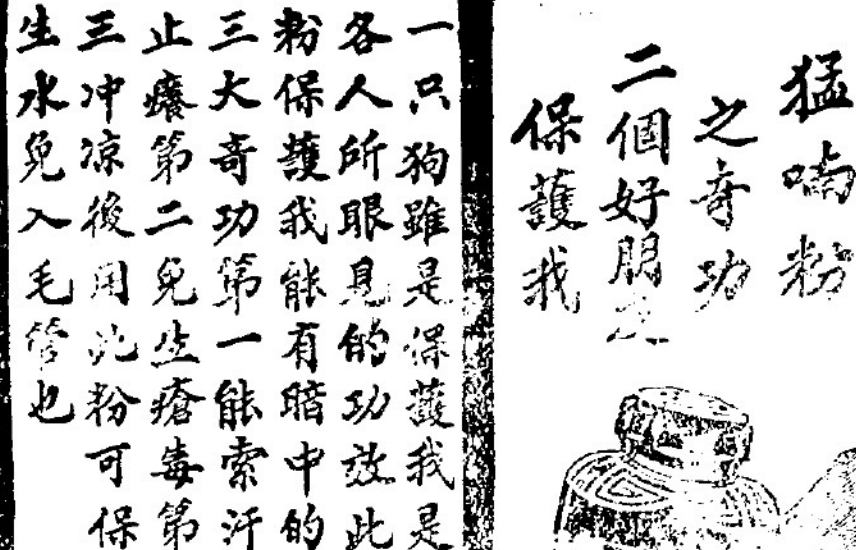 猛喃粉
之奇功
二個好朋友
保護我
一只狗雖是保護我是
各人所眼見的功效此
粉保護我能有暗中的
三大奇功第一能索汗
止癢第二免生瘡毒第
三冲凉後用此粉可保
生水免入毛管也